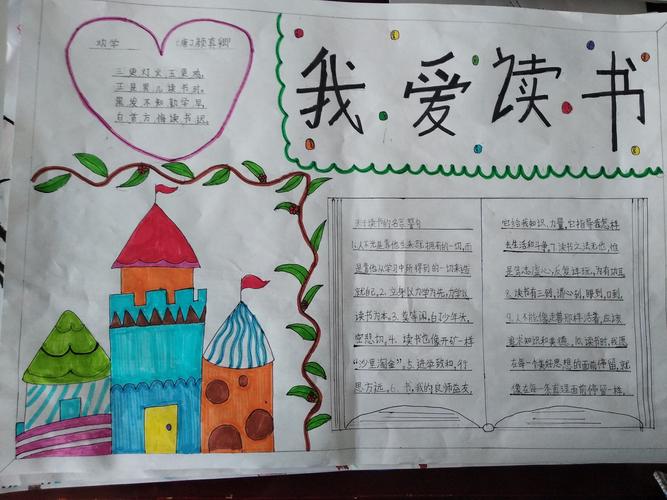 我爱读书
劝学 (唐)颜真卿
三更灯火五更鸡,
正是男儿读书时。
黑发不知勤学早,
白首方悔读书迟。
关于读书的名言警句
1.人不光是靠他生来就拥有的一切,而
是靠他从学习中所得到的一切来造
就自己。2.立身以力学为先,力学以
读书为本。3.莫等闲,白了少年头,
空悲切。4.读书也像开矿一样
“沙里淘金”。5.进学致和,行
思方远。6.书,我的良师益友,
它给我知识、力量,它指导我怎样
去生活和斗争。7.读书之法无他,惟
是笃志虚心,反复详玩,为有功耳
8.读书有三到,谓心到,眼到,口到。
9.人不能像走兽那样活着,应该
追求知识和美德 10.读书时,我愿
在每一个美好思想的面前停留,就
像在每一条真理面前停留一样。